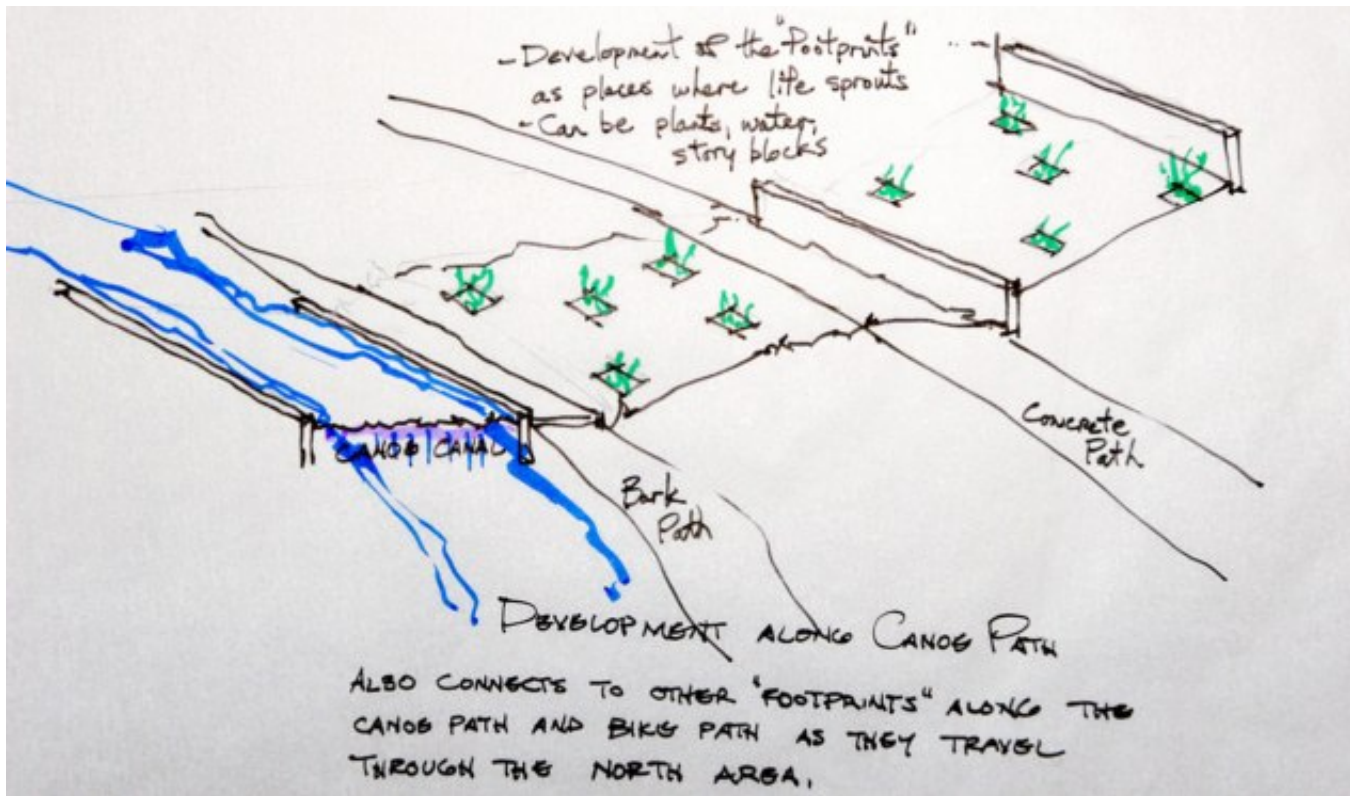 - Development of the "Footprints"
as places where life sprouts
- Can be plants, water,
story blocks
CANOE CANAL
Bark
Path
Concrete
Path
DEVELOPMENT ALONG CANOE PATH
ALSO CONNECTS TO OTHER "FOOTPRINTS" ALONG THE
CANOE PATH AND BIKE PATH AS THEY TRAVEL
THROUGH THE NORTH AREA.